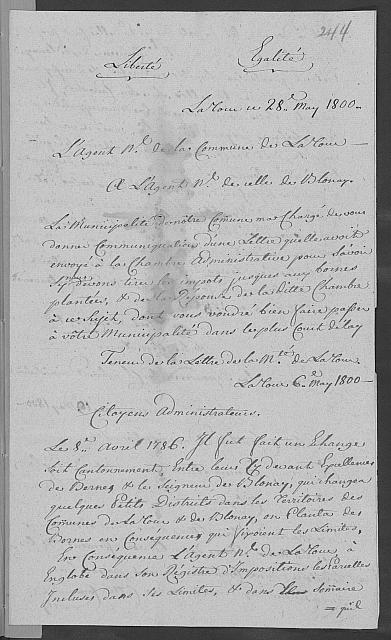 244
Liberté Egalité
LaTour ce 28.e May 1800
L'Agent N.l de la Commune de LaTour
A L'Agent N.l de celle de Blonay
La Municipalité de nôtre Comune m'a Chargé de vous
donner Communication d'une Lettre qu'elle avoit
envoyé à la Chambre Administrative pour Savoir
Sy nous devions tirer les impots jusques aux bornes
plantées, & de la Réponse de la ditte Chambre
à ce Sujet, dont vous voudrés bien faire passer
à vôtre Municipalité dans le plus Court delay
Teneur de la Lettre de la M.té de LaTour
LaTour 6.e May 1800
Citoyens Administrateurs.
Le 8.e Avril 1786. Il fut fait un Echange
Soit Cantonnement, Entre leurs Cy devant Excellences
de Berne, & le Seigneur de Blonay, qui changea
quelques Petits Districts dans les Territoires des
Comunes de LaTour & de Blonay, on Planta des
Bornes en Consequence qui fixoient les Limites,
En Consequence L'Agent N.l de LaTour à
Englobé dans son Régistre d'Impositions les Parcelles
Incluses dans ses Limites, & dans Semaire
qu'il